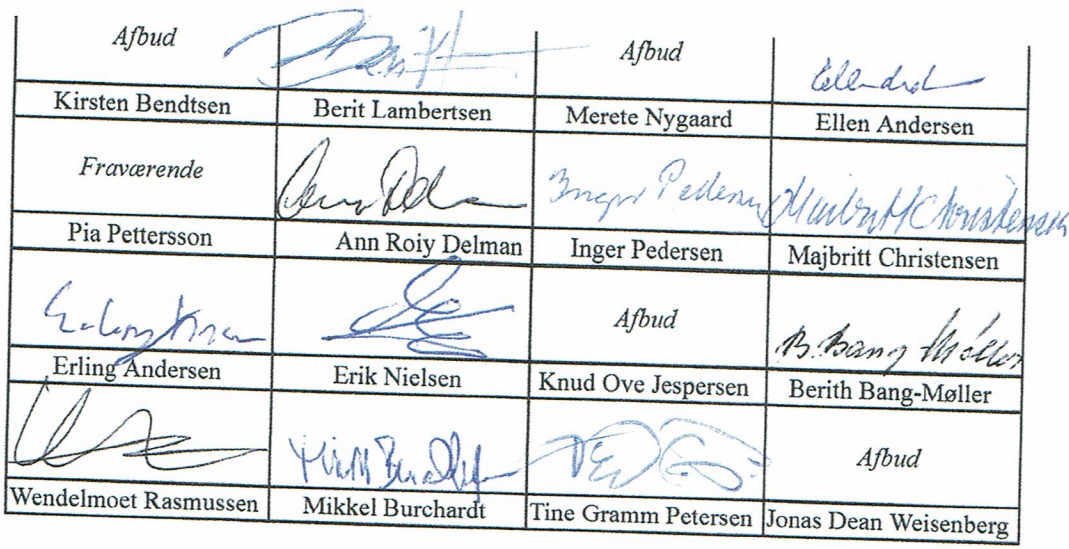 Afbud Berit Afbud
Kirsten Bendtsen Berit Lambertsen Merete Nygaard Ellen Andersen
Fraværende Inger Pedersen Majbritt Christensen
Pia Pettersson Ann Roiy Delman Inger Pedersen Majbritt Christensen
Afbud B. Bang Møller
Erling Andersen Erik Nielsen Knud Ove Jespersen Berith Bang-Møller
Afbud
Wendelmoet Rasmussen Mikkel Burchardt Tine Gramm Petersen Jonas Dean Weisenberg